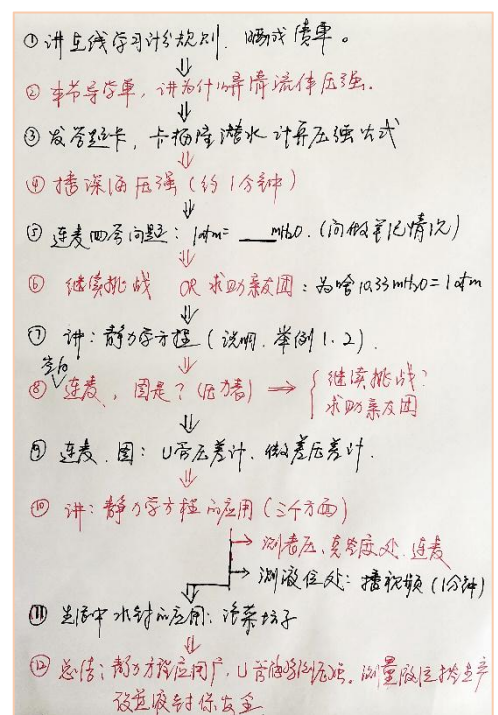 ① 讲在线学习计分规则，晒成绩单。
② 本节导学单，讲为什么弄清流体压强。
③ 发答题卡，卡梅隆潜水计算压强公式
④ 播深海压强（约1分钟）
⑤ 连麦回答问题：1atm= ___mH₂O.（问做笔记情况）
⑥ 继续挑战 OR 求助亲友团：为啥10.33mH₂O=1atm
⑦ 讲：静力学方程（说明.举例1.2）.
⑧ 连麦，图是？（压力表）⇒ { 继续挑战？
求助亲友团
⑨ 连麦.图：U管压差计.微差压差计.
⑩ 讲：静力学方程的应用（三个方面）
→ 测表压、真空度处.连麦
→ 测液位处：播视频（1分钟）
⑪ 生活中水封的应用：泡菜坛子
⑫ 总结：静力方程应用广，U管 测压强。测量液位 生产
设置液封保安全